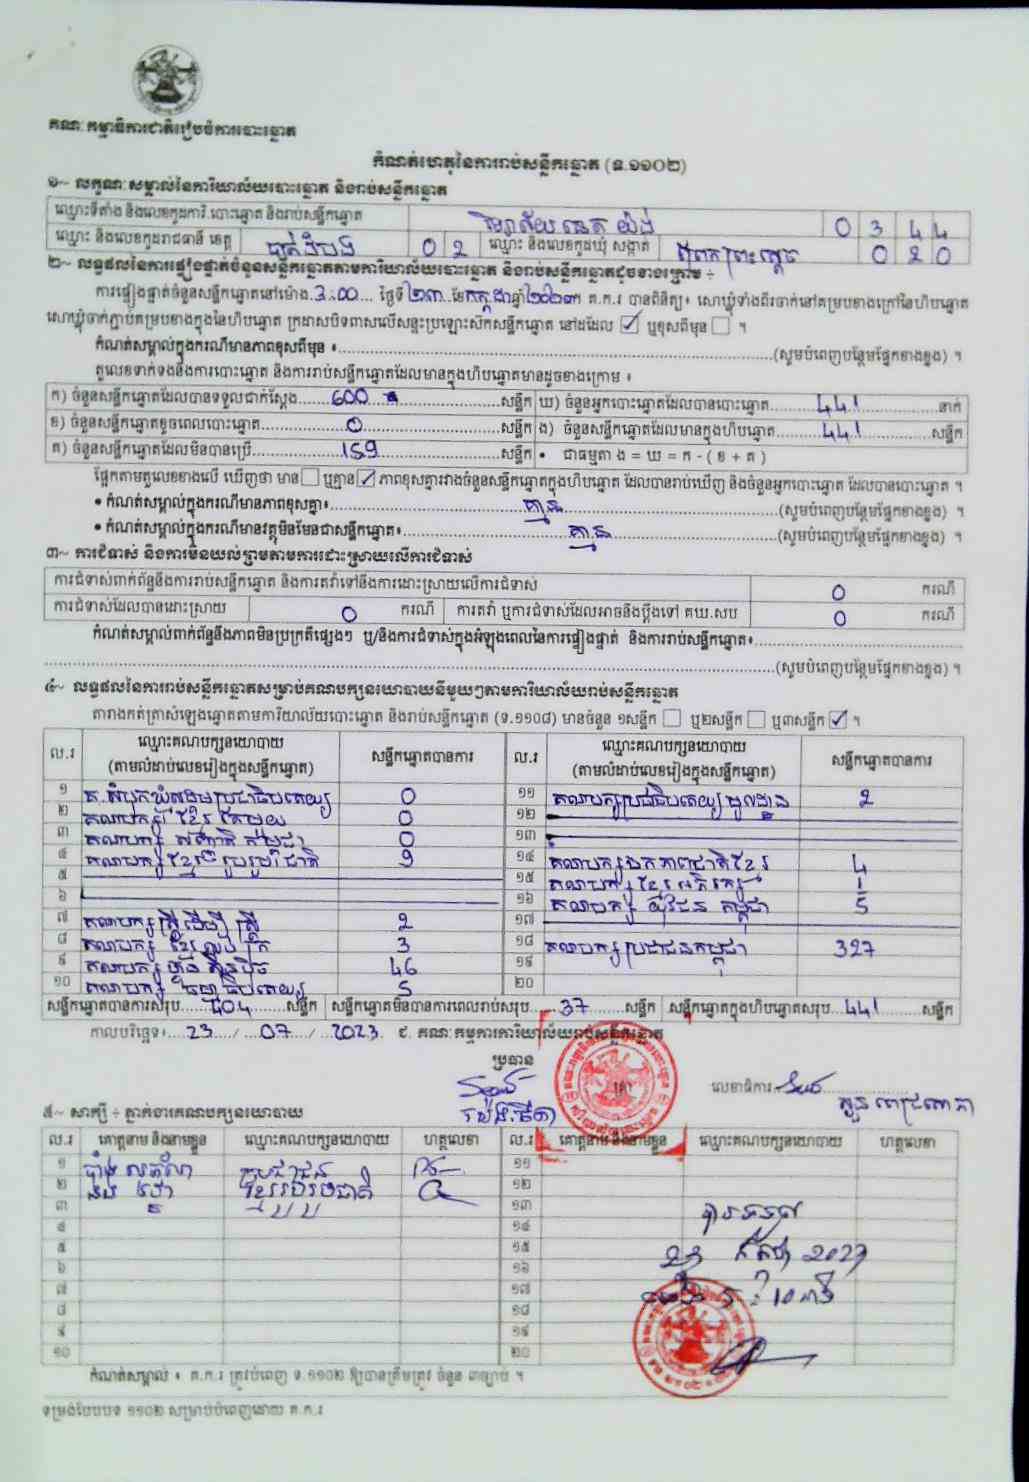 គណៈកម្មាធិការជាតិរៀបចំការបោះឆ្នោត
កំណត់ហេតុនៃការរាប់សន្លឹកឆ្នោត (ទ.១១០២)
១~ លក្ខណៈសម្គាល់នៃការិយាល័យបោះឆ្នោត និងរាប់សន្លឹកឆ្នោត
ឈ្មោះទីតាំង និងលេខកូដការិ.បោះឆ្នោត និងរាប់សន្លឹកឆ្នោត 0 3 4 4
ឈ្មោះ និងលេខកូដរាជធានី ខេត្ត បាត់ដំបង 0 2 ឈ្មោះ និងលេខកូដឃុំ សង្កាត់ ព្រែកព្រះស្តេច 0 2 0
២~ លទ្ធផលនៃការផ្ទៀងផ្ទាត់ចំនួនសន្លឹកឆ្នោតតាមការិយាល័យបោះឆ្នោត និងរាប់សន្លឹកឆ្នោតដូចខាងក្រោម ÷
ការផ្ទៀងផ្ទាត់ចំនួនសន្លឹកឆ្នោតនៅម៉ោង 3:00 ថ្ងៃទី ២៣ ខែ កក្កដា ឆ្នាំ ២០២៣ គ.ក.រ បានពិនិត្យ៖ សោឃ្លុំទាំងពីរចាក់នៅគម្របខាងក្រៅនៃហិបឆ្នោត
សោឃ្លុំចាក់ភ្ជាប់គម្របខាងក្នុងនៃហិបឆ្នោត ក្រដាសបិទពាសលើសន្ទះប្រឡោះស៊កសន្លឹកឆ្នោត នៅដដែល ☑ ឬខុសពីមុន ☐ ។
កំណត់សម្គាល់ក្នុងករណីមានភាពខុសពីមុន ៖ (សូមបំពេញបន្ថែមផ្នែកខាងខ្នង) ។
តួលេខទាក់ទងនឹងការបោះឆ្នោត និងការរាប់សន្លឹកឆ្នោតដែលមានក្នុងហិបឆ្នោតមានដូចខាងក្រោម ៖
ក) ចំនួនសន្លឹកឆ្នោតដែលបានទទួលជាក់ស្តែង 600 សន្លឹក ឃ) ចំនួនអ្នកបោះឆ្នោតដែលបានបោះឆ្នោត 441 នាក់
ខ) ចំនួនសន្លឹកឆ្នោតខូចពេលបោះឆ្នោត 0 សន្លឹក ង) ចំនួនសន្លឹកឆ្នោតដែលមានក្នុងហិបឆ្នោត 441 សន្លឹក
គ) ចំនួនសន្លឹកឆ្នោតដែលមិនបានប្រើ 159 សន្លឹក • ជាធម្មតា ង = ឃ = ក - ( ខ + គ )
ផ្អែកតាមតួលេខខាងលើ ឃើញថា មាន ☐ ឬគ្មាន ☑ ភាពខុសគ្នារវាងចំនួនសន្លឹកឆ្នោតក្នុងហិបឆ្នោត ដែលបានរាប់ឃើញ និងចំនួនអ្នកបោះឆ្នោត ដែលបានបោះឆ្នោត ។
• កំណត់សម្គាល់ក្នុងករណីមានភាពខុសគ្នា៖ គ្មាន (សូមបំពេញបន្ថែមផ្នែកខាងខ្នង) ។
• កំណត់សម្គាល់ក្នុងករណីមានវត្ថុមិនមែនជាសន្លឹកឆ្នោត៖ គ្មាន (សូមបំពេញបន្ថែមផ្នែកខាងខ្នង) ។
៣~ ការជំទាស់ និងការមិនយល់ព្រមតាមការដោះស្រាយលើការជំទាស់
ការជំទាស់ពាក់ព័ន្ធនឹងការរាប់សន្លឹកឆ្នោត និងការតវ៉ាទៅនឹងការដោះស្រាយលើការជំទាស់ 0 ករណី
ការជំទាស់ដែលបានដោះស្រាយ 0 ករណី ការតវ៉ា ឬការជំទាស់ដែលអាចនឹងប្តឹងទៅ គឃ.សប 0 ករណី
កំណត់សម្គាល់ពាក់ព័ន្ធនឹងភាពមិនប្រក្រតីផ្សេងៗ ឬ/និងការជំទាស់ក្នុងអំឡុងពេលនៃការផ្ទៀងផ្ទាត់ និងការរាប់សន្លឹកឆ្នោត៖
(សូមបំពេញបន្ថែមផ្នែកខាងខ្នង) ។
៤~ លទ្ធផលនៃការរាប់សន្លឹកឆ្នោតសម្រាប់គណបក្សនយោបាយនីមួយៗតាមការិយាល័យរាប់សន្លឹកឆ្នោត
តារាងកត់ត្រាសំឡេងឆ្នោតតាមការិយាល័យបោះឆ្នោត និងរាប់សន្លឹកឆ្នោត (ទ.១១០៨) មានចំនួន ១សន្លឹក ☐ ឬ២សន្លឹក ☐ ឬ៣សន្លឹក ☑ ។
ល.រ ឈ្មោះគណបក្សនយោបាយ (តាមលំដាប់លេខរៀងក្នុងសន្លឹកឆ្នោត) សន្លឹកឆ្នោតបានការ ល.រ ឈ្មោះគណបក្សនយោបាយ (តាមលំដាប់លេខរៀងក្នុងសន្លឹកឆ្នោត) សន្លឹកឆ្នោតបានការ
១ គ.សំបុកឃ្មុំសង្គមប្រជាធិបតេយ្យ 0 ១១ គណបក្សប្រជាធិបតេយ្យមូលដ្ឋាន 2
២ គណបក្ស ខ្មែរតែមួយ 0 ១២
៣ គណបក្ស សញ្ជាតិកម្ពុជា 0 ១៣
៤ គណបក្ស ខ្មែររួបរួមជាតិ 9 ១៤ គណបក្សឯកភាពជាតិខ្មែរ 4
៥ ១៥ គណបក្ស ខ្មែរអភិរក្ស 1
៦ ១៦ គណបក្ស យុវជនកម្ពុជា 5
៧ គណបក្សស្ត្រីដើម្បីស្ត្រី 2 ១៧
៨ គណបក្ស ខ្មែរឈប់ក្រ 3 ១៨ គណបក្សប្រជាជនកម្ពុជា 327
៩ គណបក្ស ហ៊្វុនស៊ិនប៉ិច 46 ១៩
១០ គណបក្ស ធម្មាធិបតេយ្យ 5 ២០
សន្លឹកឆ្នោតបានការសរុប 404 សន្លឹក សន្លឹកឆ្នោតមិនបានការពេលរាប់សរុប 37 សន្លឹក សន្លឹកឆ្នោតក្នុងហិបឆ្នោតសរុប 441 សន្លឹក
កាលបរិច្ឆេទ៖ 23 / 07 / 2023 ជ. គណៈកម្មការការិយាល័យរាប់សន្លឹកឆ្នោត
ប្រធាន
លេខាធិការ
៥~ សាក្សី ÷ ភ្នាក់ងារគណបក្សនយោបាយ
ល.រ គោត្តនាម និងនាមខ្លួន ឈ្មោះគណបក្សនយោបាយ ហត្ថលេខា ល.រ គោត្តនាម និងនាមខ្លួន ឈ្មោះគណបក្សនយោបាយ ហត្ថលេខា
១ ១១
២ ខ្មែររួបរួមជាតិ ១២
៣ ១៣
៤ ១៤
៥ ១៥
៦ ១៦
៧ ១៧
៨ ១៨
៩ ១៩
១០ ២០
បានទទួល
23 កក្កដា 2023
កំណត់សម្គាល់ ៖ គ.ក.រ ត្រូវបំពេញ ទ.១១០២ ឱ្យបានត្រឹមត្រូវ ចំនួន ៣ច្បាប់ ។
ទម្រង់បែបបទ ១១០២ សម្រាប់បំពេញដោយ គ.ក.រ